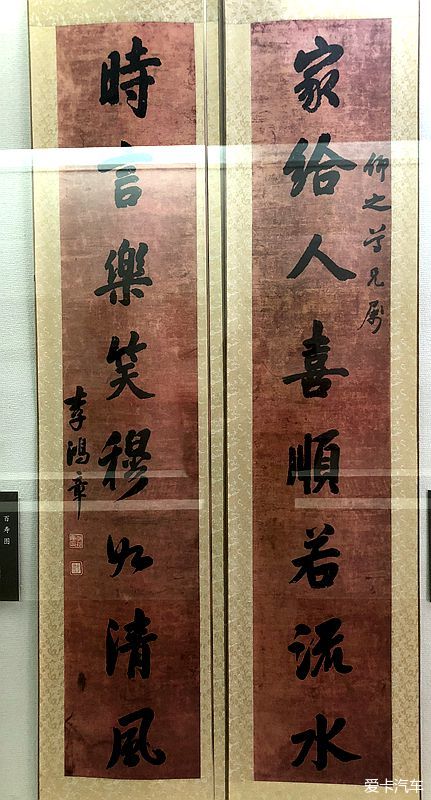 家給人喜順若流水
仰之尊兄屬
時言樂笑穆如清風
李鴻章
百寿图
爱卡汽车